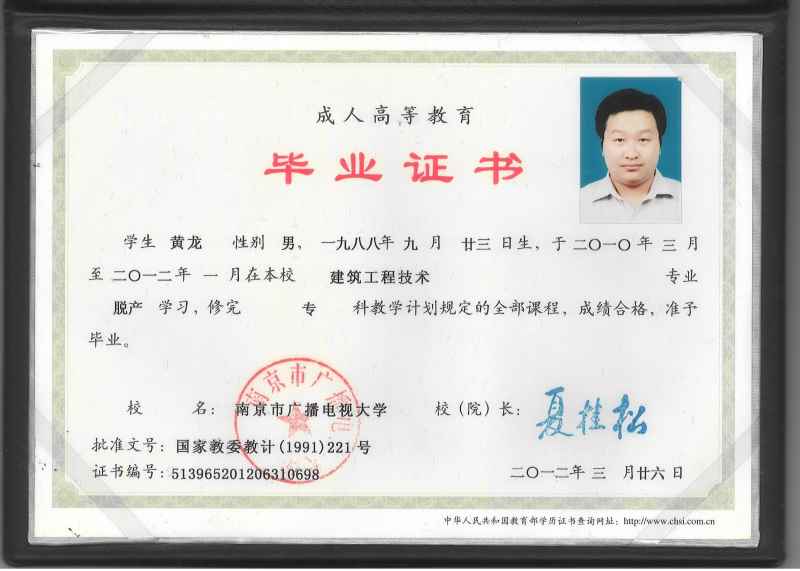 成人高等教育
毕业证书
学生 黄龙 性别 男，一九八八年 九 月 廿三 日生，于二〇一〇年 三 月
至二〇一二年 一 月在本校 建筑工程技术 专业
脱产 学习，修完 专 科教学计划规定的全部课程，成绩合格，准予
毕业。
校 名：南京市广播电视大学 校（院）长：夏桂松
批准文号：国家教委教计(1991)221号
证书编号：513965201206310698 二〇一二年 三 月廿六日
中华人民共和国教育部学历证书查询网址：http://www.chsi.com.cn